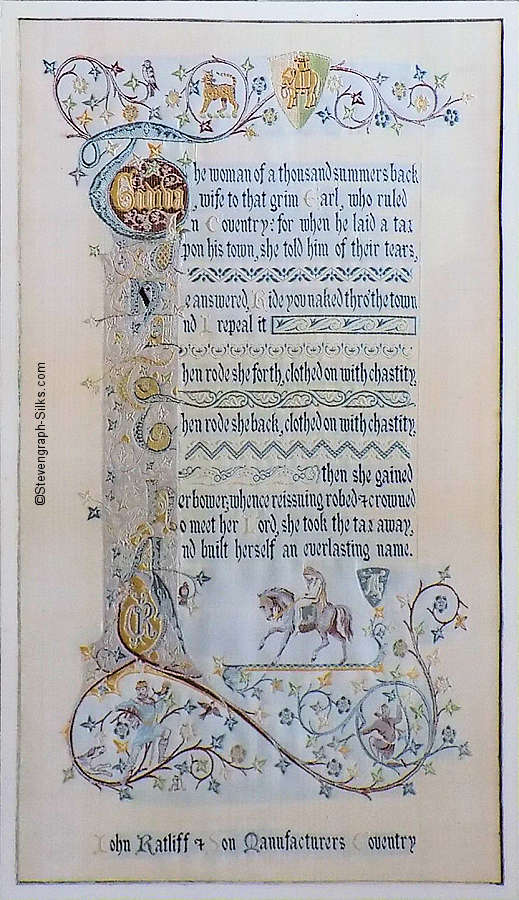 The woman of a thousand summers back
Godiva, wife to that grim Earl, who ruled
In Coventry: for when he laid a tax
Upon his town, she told him of their tears,
He answered, Ride you naked thro' the town
And I repeal it
Then rode she forth, clothed on with chastity,
Then rode she back, clothed on with chastity,
then she gained
Her bower; whence reissuing, robed & crowned
To meet her Lord, she took the tax away,
And built herself an everlasting name.
John Ratliff & Son Manufacturers Coventry
©Stevengraph-Silks.com